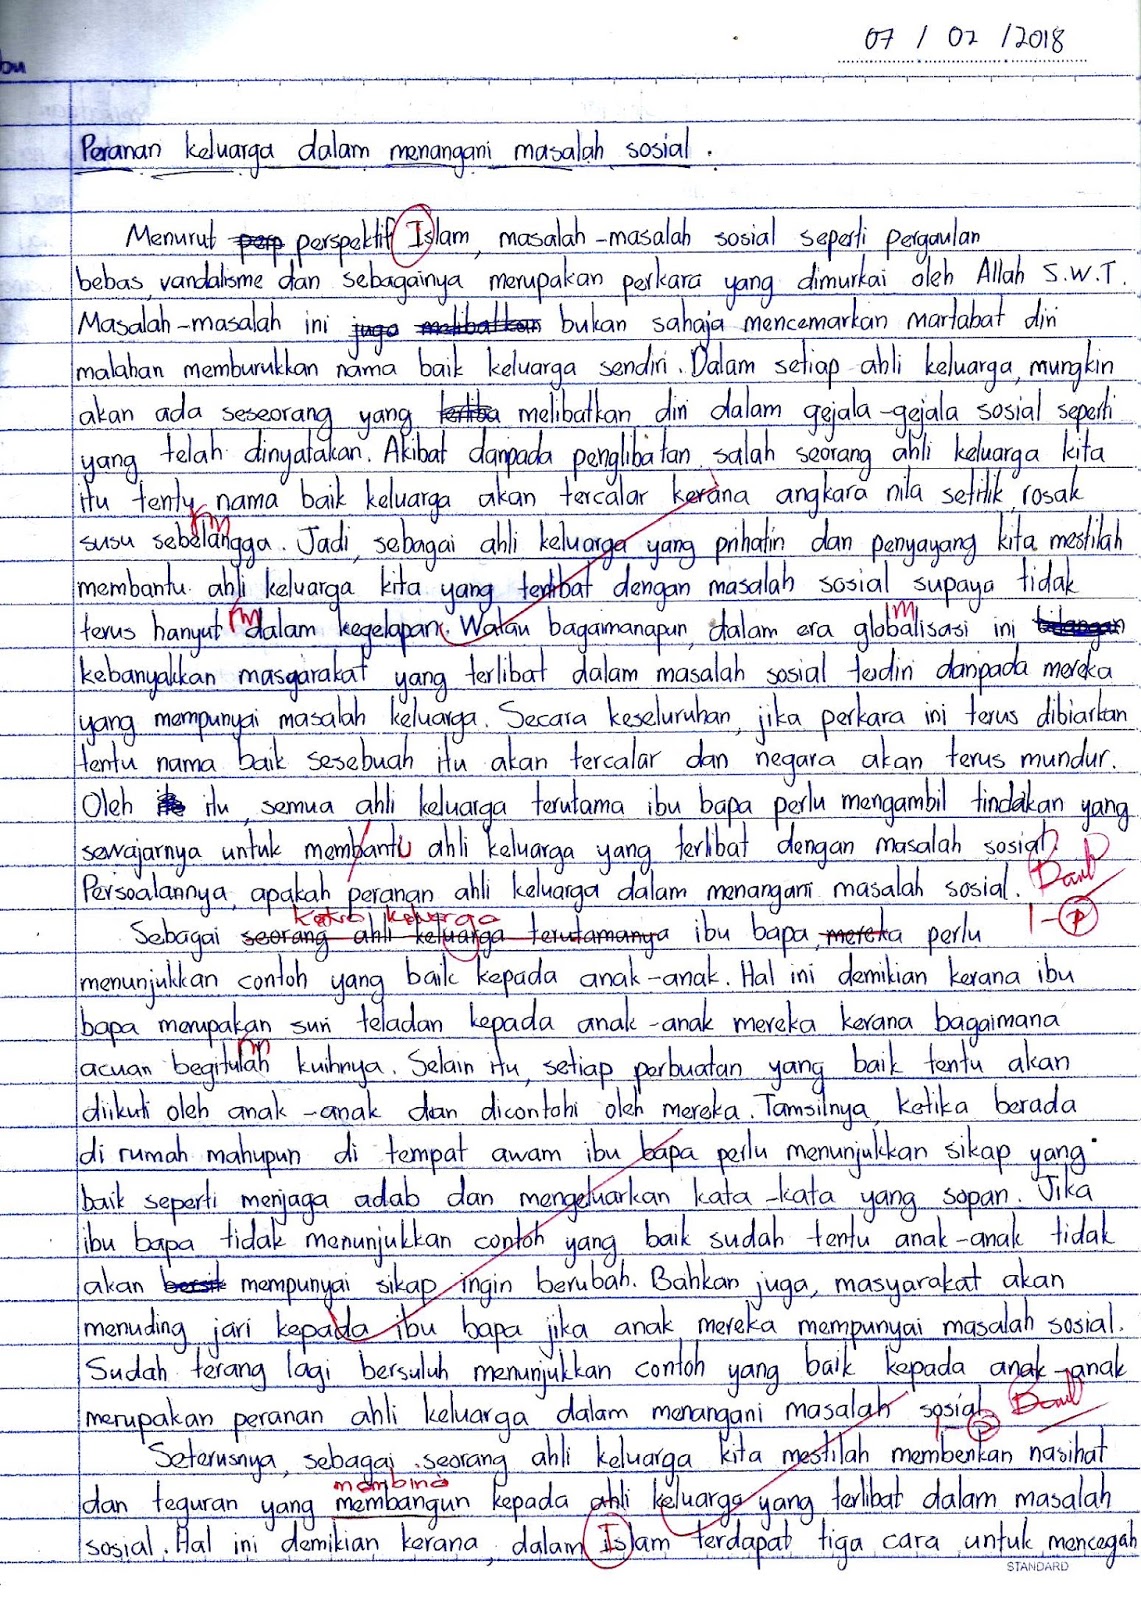 07 / 02 / 2018
bu
Peranan keluarga dalam menangani masalah sosial.
Menurut perp perspektif Islam, masalah-masalah sosial seperti pergaulan
bebas, vandalisme dan sebagainya merupakan perkara yang dimurkai oleh Allah S.W.T.
Masalah-masalah ini juga melibatkan bukan sahaja mencemarkan martabat diri
malahan memburukkan nama baik keluarga sendiri. Dalam setiap ahli keluarga, mungkin
akan ada seseorang yang melibatkan diri dalam gejala-gejala sosial seperti
yang telah dinyatakan. Akibat daripada penglibatan salah seorang ahli keluarga kita
itu tentu nama baik keluarga akan tercalar kerana angkara nila setitik, rosak
m
susu sebelangga. Jadi, sebagai ahli keluarga yang prihatin dan penyayang kita mestilah
membantu ahli keluarga kita yang terlibat dengan masalah sosial supaya tidak
m m
terus hanyut dalam kegelapan. Walau bagaimanapun, dalam era globalisasi ini bilangan
kebanyakkan masyarakat yang terlibat dalam masalah sosial terdiri daripada mereka
yang mempunyai masalah keluarga. Secara keseluruhan, jika perkara ini terus dibiarkan
tentu nama baik sesebuah itu akan tercalar dan negara akan terus mundur.
Oleh itu, semua ahli keluarga terutama ibu bapa perlu mengambil tindakan yang
sewajarnya untuk membantu ahli keluarga yang terlibat dengan masalah sosial.
Persoalannya, apakah peranan ahli keluarga dalam menangani masalah sosial.
1-P
ketua keluarga
Sebagai seorang ahli keluarga terutamanya ibu bapa, mereka perlu
menunjukkan contoh yang baik kepada anak-anak. Hal ini demikian kerana ibu
bapa merupakan suri teladan kepada anak-anak mereka kerana bagaimana
m
acuan begitulah kuihnya. Selain itu, setiap perbuatan yang baik tentu akan
diikuti oleh anak-anak dan dicontohi oleh mereka. Tamsilnya, ketika berada
di rumah mahupun di tempat awam ibu bapa perlu menunjukkan sikap yang
baik seperti menjaga adab dan mengeluarkan kata-kata yang sopan. Jika
ibu bapa tidak menunjukkan contoh yang baik sudah tentu anak-anak tidak
akan mempunyai sikap ingin berubah. Bahkan juga, masyarakat akan
menuding jari kepada ibu bapa jika anak mereka mempunyai masalah sosial.
Sudah terang lagi bersuluh menunjukkan contoh yang baik kepada anak-anak
merupakan peranan ahli keluarga dalam menangani masalah sosial.
Seterusnya, sebagai seorang ahli keluarga kita mestilah memberikan nasihat
membina
dan teguran yang membangun kepada ahli keluarga yang terlibat dalam masalah
sosial. Hal ini demikian kerana, dalam Islam terdapat tiga cara untuk mencegah
STANDARD